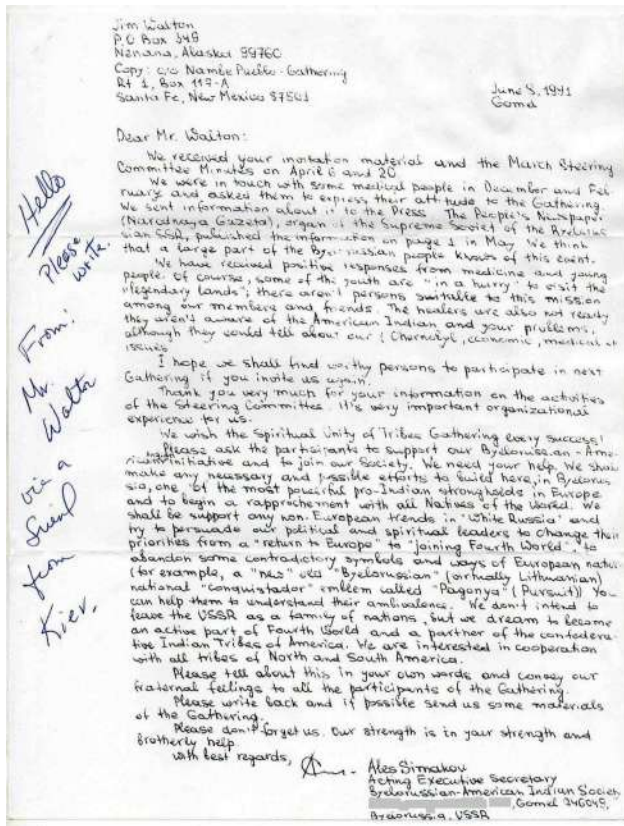 Jim Walton
P.O Box 349
Nenana, Alaska 99760
Copy: c/o Nambe Pueblo - Gathering
Rt 1, Box 119-A
Santa Fe, New Mexico 87501
June 8, 1991
Gomel
Dear Mr. Walton:
We received your invitation material and the March Steering
Committee Minutes on April 6 and 20
We were in touch with some medical people in December and Feb-
ruary and asked them to express their attitude to the Gathering.
We sent information about it to the Press. The People's Newspaper
(Narodnaya Gazeta), organ of the Supreme Soviet of the Byelorus-
sian SSR, published the information on page 1 in May. We think
that a large part of the Byelorussian people knows of this event.
We have received positive responses from medicine and young
people. Of course, some of the youth are "in a hurry" to visit the
"legendary lands"; there aren't persons suitable to this mission
among our members and friends. The healers are also not ready
they aren't aware of the American Indian and your problems,
although they could tell about our (Chernobyl, economic, medical
issues
I hope we shall find worthy persons to participate in next
Gathering if you invite us again.
Thank you very much for your information on the activities
of the Steering Committee. It's very important organizational
experience for us.
We wish the Spiritual Unity of Tribes Gathering every success!
Please ask the participants to support our Byelorussian-Ame-
rican initiative and to join our Society. We need your help. We shall
make any necessary and possible efforts to build here, in Byelorus-
sia, one of the most powerful pro-Indian strongholds in Europe
and to begin a rapprochement with all Natives of the World. We
shall be support any non-European trends in "White Russia" and
try to persuade our political and spiritual leaders to change their
priorities from a "return to Europe" to "joining Fourth World", to
abandon some contradictory symbols and ways of European
(for example, a "new" old "Byelorussian" (virtually Lithuanian)
national "conquistador" emblem called "Pagonya" (Pursuit)) You
can help them to understand their ambivalence. We don't intend to
leave the USSR as a family of nations, but we dream to become
an active part of Fourth World and a partner of the confedera-
tive Indian Tribes of America. We are interested in cooperation
with all tribes of North and South America.
Please tell about this in your own words and convey our
fraternal feelings to all the participants of the Gathering.
Please write back and if possible send us some materials
of the Gathering.
Please don't forget us. Our strength is in your strength and
brotherly help.
With best regards,
Ales Simakou
Acting Executive Secretary
Byelorussian-American Indian Society
, Gomel 246049,
Byelorussia, USSR
Hello
Please
write.
From:
Mr.
Walton
via a
friend
from
Kiev.